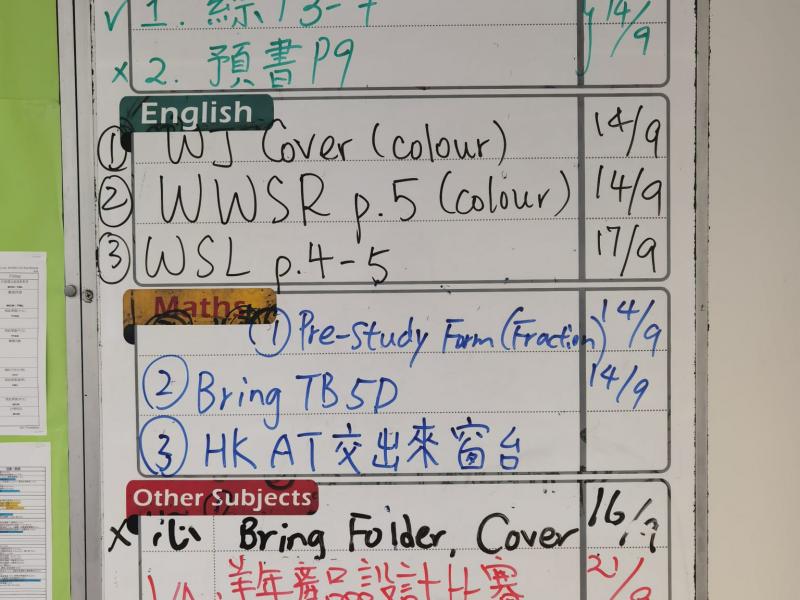 √ 1. 綜 P3-7 14/9
x 2. 預書 P9
English
① WJ Cover (colour) 14/9
② WWSR p.5 (colour) 14/9
③ WSL p.4-5 17/9
Maths
① Pre-Study Form (Fraction) 14/9
② Bring TB 5D 14/9
③ HKAT交出來窗台
Other Subjects
x 心 Bring Folder, Cover 16/9
年產品設計比賽 21/9